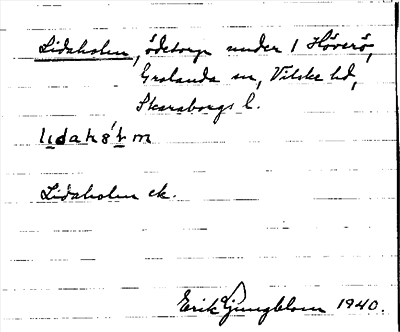 Lidaholm, ödetorp under 1 Höverö,
Grolanda sn, Vilske hd,
Skaraborgs l.
lidahål̀m
Lidaholm ek.
Erik Ljungblom 1940.